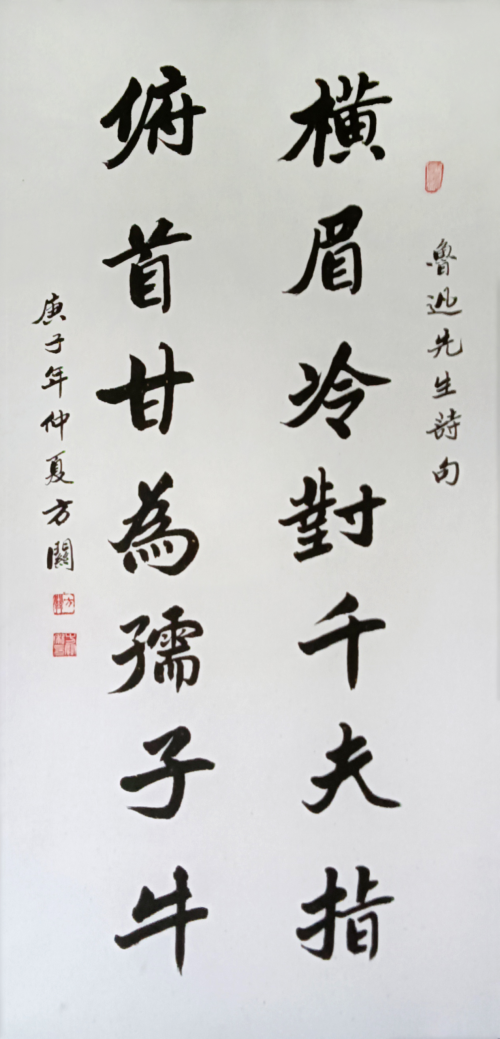 魯迅先生詩句
橫眉冷對千夫指
俯首甘為孺子牛
庚子年仲夏方